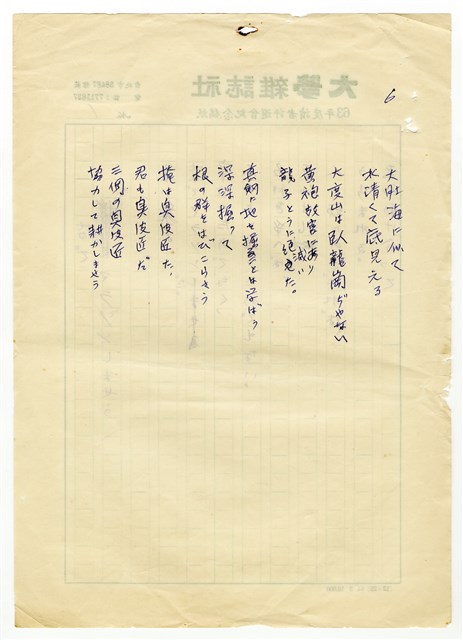 大學雜誌社
6
大肚海に似て
水清くて底見える
大度山は臥龍崗ぢやない
黄袍故宮にあり
龍子とうに絶
真剣に地を掘ることを学ばう
深深掘って
根の群をはびこらさう
俺は臭皮匠だ
君も臭皮匠だ
三個の臭皮匠
協力して耕かしませう